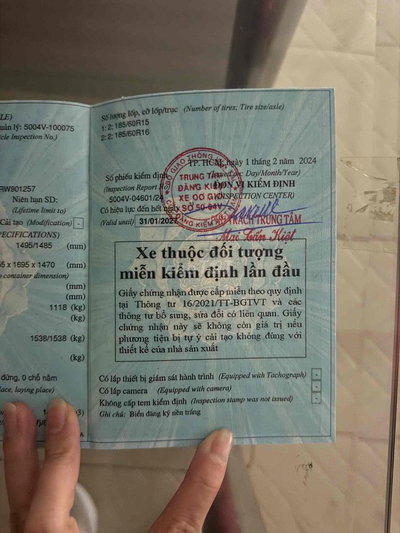 LE)
uản lý: 5004V-100075
cle Inspection No.)
RW801257
Niên hạn SD:
(Lifetime limit to)
Cải tạo (Modification) -
PECIFICATIONS)
1495/1485 (mm)
x 1695 x 1470 (mm)
container dimension)
(mm)
1118 (kg)
(kg)
1538/1538 (kg)
(kg)
đứng, 0 chỗ nằm
lace, laying place)
Số lượng lốp, cỡ lốp/trục (Number of tires; Tire size/axle)
1: 2; 185/60R15
2: 2; 185/60R16
TP. HCM, ngày 1 tháng 2 năm 2024
(Issued on: Day/Month/Year)
Số phiếu kiểm định
ĐƠN VỊ KIỂM ĐỊNH
(Inspection Report
(INSPECTION CENTER)
5004V-04601/24
Có hiệu lực đến hết ngày
(Valid until) 31/01/2027
SỞ GIAO THÔNG
TRUNG TÂM
ĐĂNG KIỂM
XE CƠ GIỚI
SỐ 50-04V
PHỤ TRÁCH TRUNG TÂM
Mai Tấn Kiệt
Xe thuộc đối tượng
miễn kiểm định lần đầu
Giấy chứng nhận được cấp miễn theo quy định
tại Thông tư 16/2021/TT-BGTVT và các
thông tư bổ sung, sửa đổi có liên quan. Giấy
chứng nhận này sẽ không còn giá trị nếu
phương tiện bị tự ý cải tạo không đúng với
thiết kế của nhà sản xuất
Có lắp thiết bị giám sát hành trình (Equipped with Tachograph) -
Có lắp camera (Equipped with camera) -
Không cấp tem kiểm định (Inspection stamp was not issued) -
Ghi chú: Biển đăng ký nền trắng